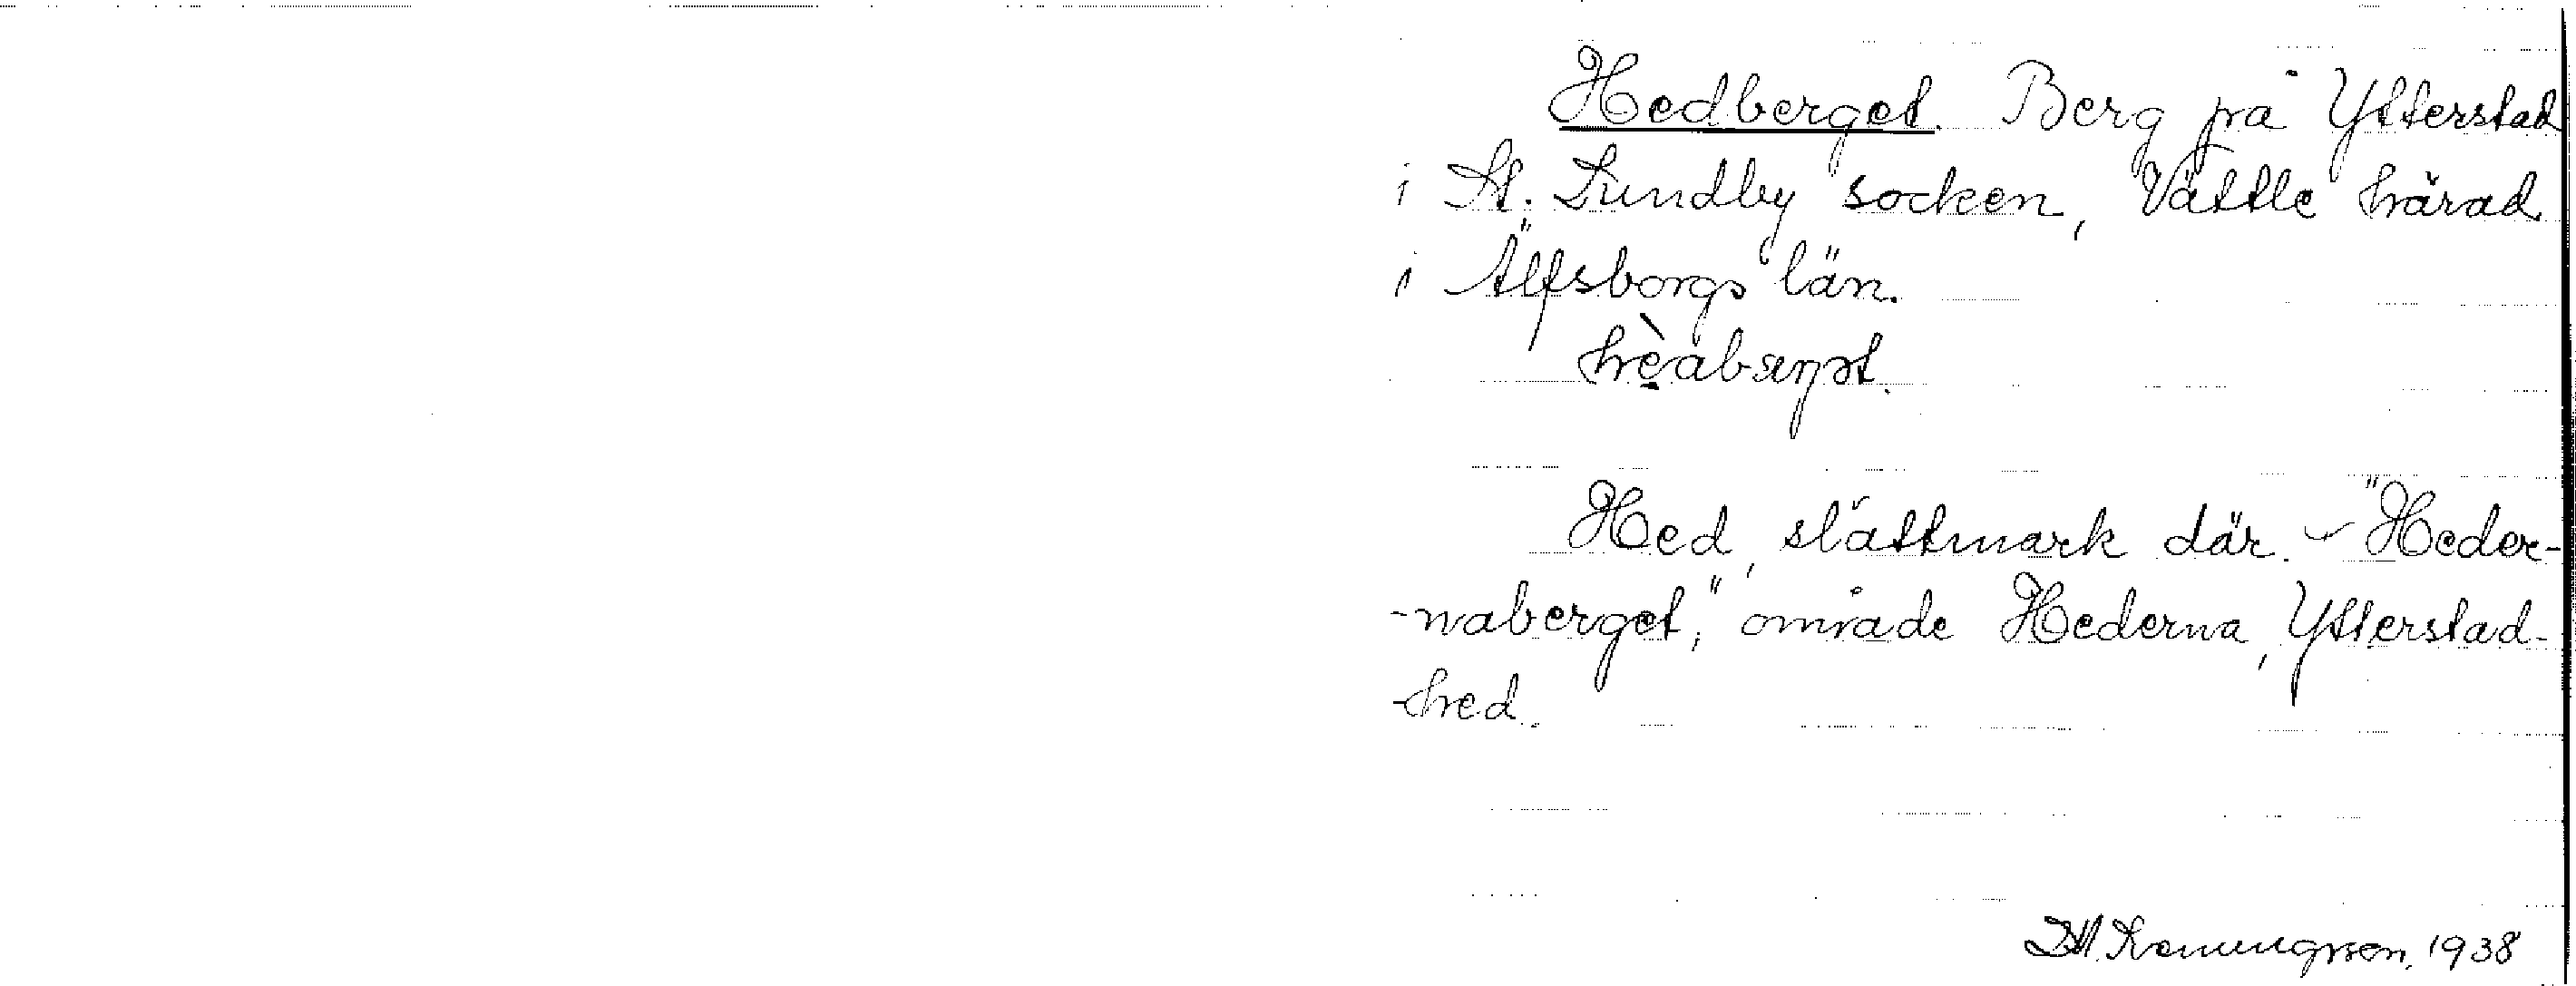 Hedberget. Berg på Ytterstad
i St. Lundby socken, Vättle härad
i Älfsborgs län.
Hed, slättmark där. – "Heder-
-naberget," område Hederna, Ytterstad-
-hed.
1938